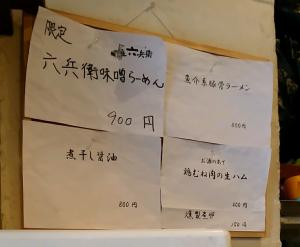 限定
六兵衛
六兵衛味噌らーめん
900 円
魚介系豚骨ラーメン
800円
煮干し醤油
800 円
お酒のあて
鶏むね肉の生ハム
300 円
燻製煮卵
150 円